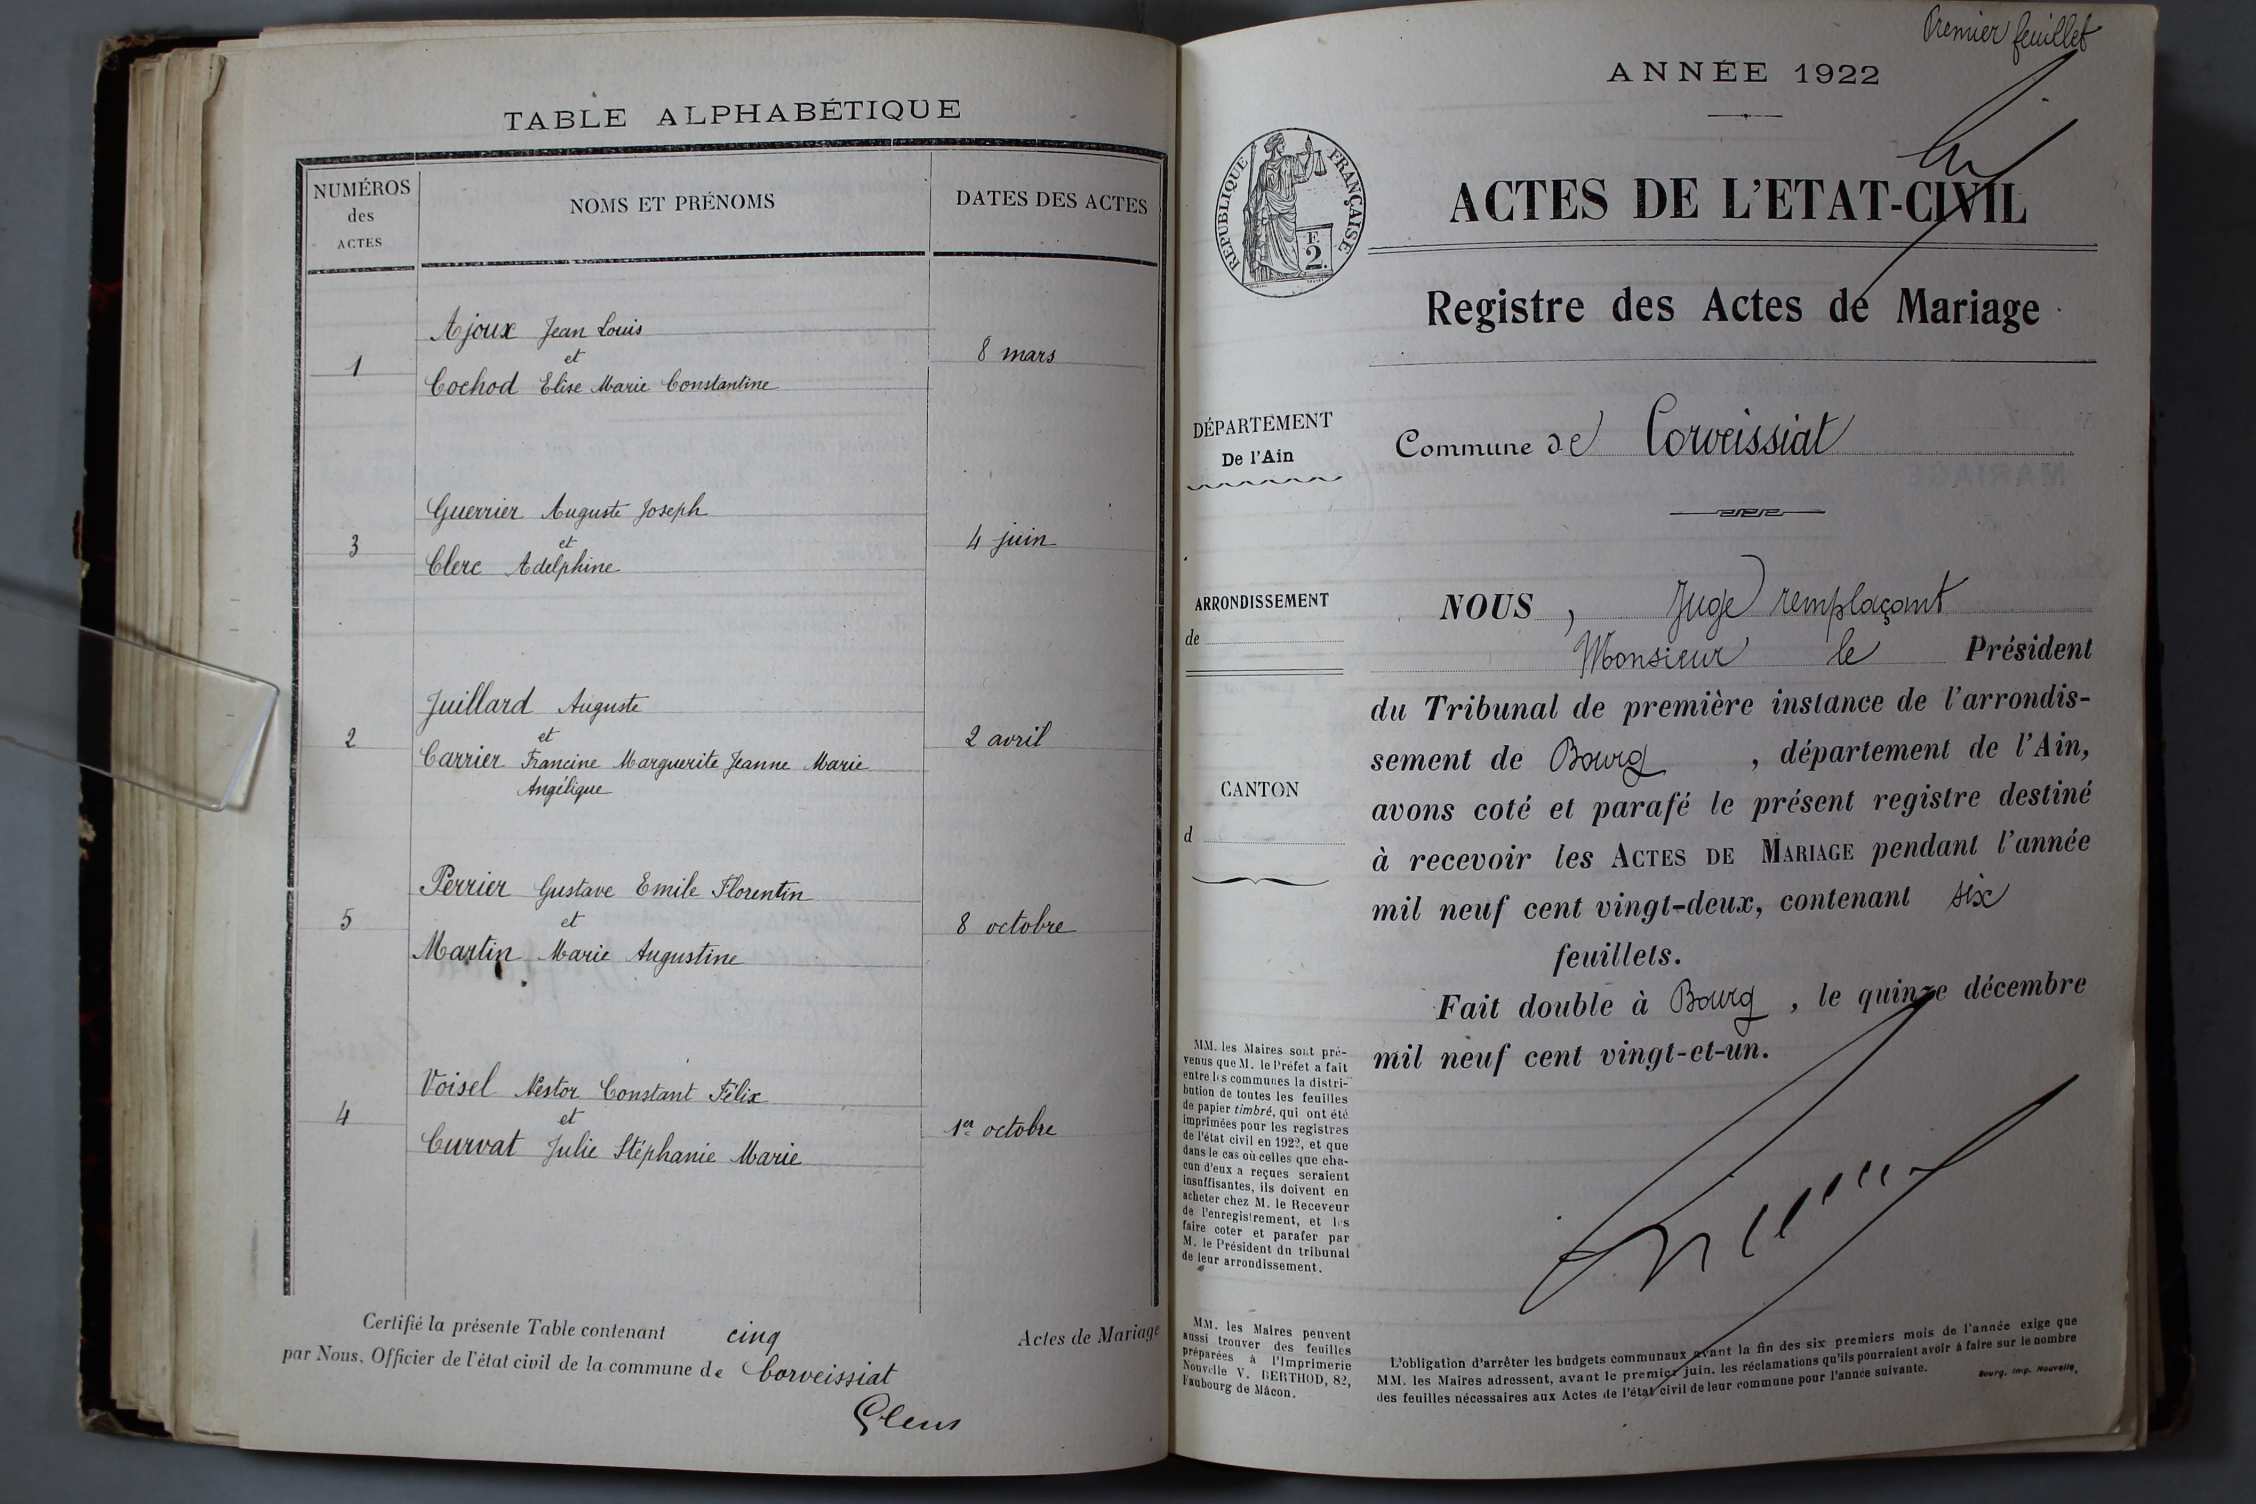 TABLE ALPHABÉTIQUE
NUMÉROS
des
ACTES
NOMS ET PRÉNOMS
DATES DES ACTES
Ajoux Jean Louis
et
1
8 mars
Cochod Elise Marie Constantine
Guerrier Auguste Joseph
et
3
4 juin
Clerc Adelphine
Juillard Auguste
et
2
2 avril
Carrier Francine Marguerite Jeanne Marie
Angélique
Perrier Gustave Emile Florentin
et
5
8 octobre
Martin Marie Augustine
Voisel Nestor Constant Félix
et
4
1er octobre
Curvat Julie Stéphanie Marie
Certifié la présente Table contenant cinq Actes de Mariage
par Nous, Officier de l'état civil de la commune de Corveissiat
Premier feuillet
ANNÉE 1922
RÉPUBLIQUE FRANÇAISE
F.
2.
ACTES DE L'ETAT-CIVIL
Registre des Actes de Mariage
DÉPARTEMENT
De l'Ain
Commune de Corveissiat
ARRONDISSEMENT
de
CANTON
d
NOUS, Juge remplaçant
Monsieur le Président
du Tribunal de première instance de l'arrondis-
sement de Bourg, département de l'Ain,
avons coté et parafé le présent registre destiné
à recevoir les ACTES DE MARIAGE pendant l'année
mil neuf cent vingt-deux, contenant six
feuillets.
Fait double à Bourg, le quinze décembre
mil neuf cent vingt-et-un.
MM. les Maires sont pré-
venus que M. le Préfet a fait
entre les communes la distri-
bution de toutes les feuilles
de papier timbré, qui ont été
imprimées pour les registres
de l'état civil en 1922, et que
dans le cas où celles que cha-
cun d'eux a reçues seraient
insuffisantes, ils doivent en
acheter chez M. le Receveur
de l'enregistrement, et les
faire coter et parafer par
M. le Président du tribunal
de leur arrondissement.
MM. les Maires peuvent
aussi trouver des feuilles
préparées à l'Imprimerie
Nouvelle V. BERTHOD, 82,
Faubourg de Mâcon.
L'obligation d'arrêter les budgets communaux avant la fin des six premiers mois de l'année exige que
MM. les Maires adressent, avant le premier juin, les réclamations qu'ils pourraient avoir à faire sur le nombre
des feuilles nécessaires aux Actes de l'état civil de leur commune pour l'année suivante.
Bourg, Imp. Nouvelle.